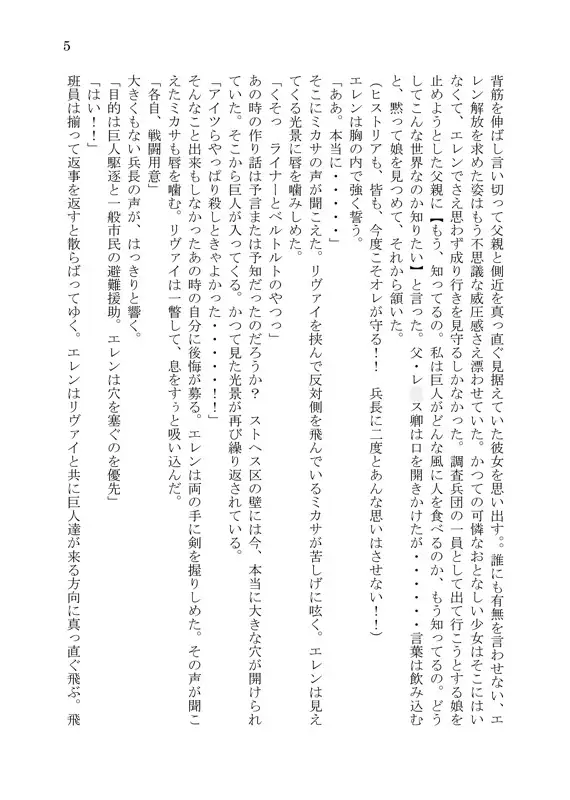 5
背筋を伸ばし言い切って父親と側近を真っ直ぐ見据えていた彼女を思い出す。。誰にも有無を言わせない、エ
レン解放を求めた姿はもう不思議な威圧感さえ漂わせていた。かつての可憐なおとなしい少女はそこにはい
なくて、エレンでさえ思わず成り行きを見守るしかなかった。調査兵団の一員として出て行こうとする娘を
止めようとした父親に【もう、知ってるの。私は巨人がどんな風に人を食べるのか、もう知ってるの。どう
してこんな世界なのか知りたい】と言った。父・レ ス卿は口を開きかけたが・・・・・言葉は飲み込む
と、黙って娘を見つめて、それから頷いた。
(ヒストリアも、皆も、今度こそオレが守る！！　兵長に二度とあんな思いはさせない！！)
エレンは胸の内で強く誓う。
「ああ。本当に・・・・・」
そこにミカサの声が聞こえた。リヴァイを挟んで反対側を飛んでいるミカサが苦しげに呟く。エレンは見え
てくる光景に唇を噛みしめた。
「くそっ　ライナーとベルトルトのやつっ」
あの時の作り話は予言または予知だったのだろうか？　ストヘス区の壁には今、本当に大きな穴が開けられ
ていた。そこから巨人が入ってくる。かつて見た光景が再び繰り返されている。
「アイツらやっぱり殺しときゃよかった・・・・・！！」
そんなこと出来もしなかったあの時の自分に後悔が募る。エレンは両の手に剣を握りしめた。その声が聞こ
えたミカサも唇を噛む。リヴァイは一瞥して、息をすぅと吸い込んだ。
「各自、戦闘用意」
大きくもない兵長の声が、はっきりと響く。
「目的は巨人駆逐と一般市民の避難援助。エレンは穴を塞ぐのを優先」
「はい！！」
班員は揃って返事を返すと散らばってゆく。エレンはリヴァイと共に巨人達が来る方向に真っ直ぐ飛ぶ。飛